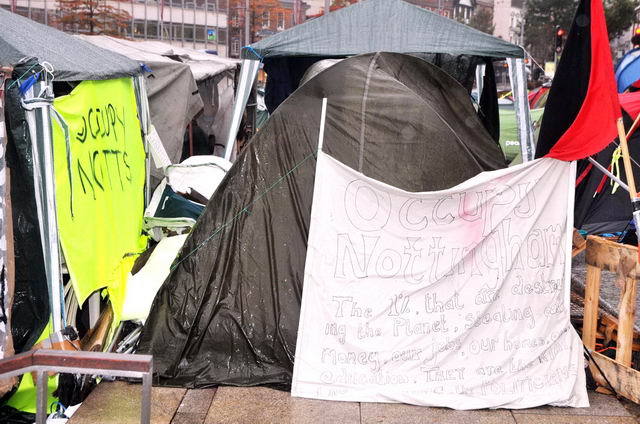 OCCUPY
NOTTS
Occupy
Nottingham
The 1%, that are destroy
ing the Planet, stealing our
Money, our jobs, our homes, our
education. THEY are the